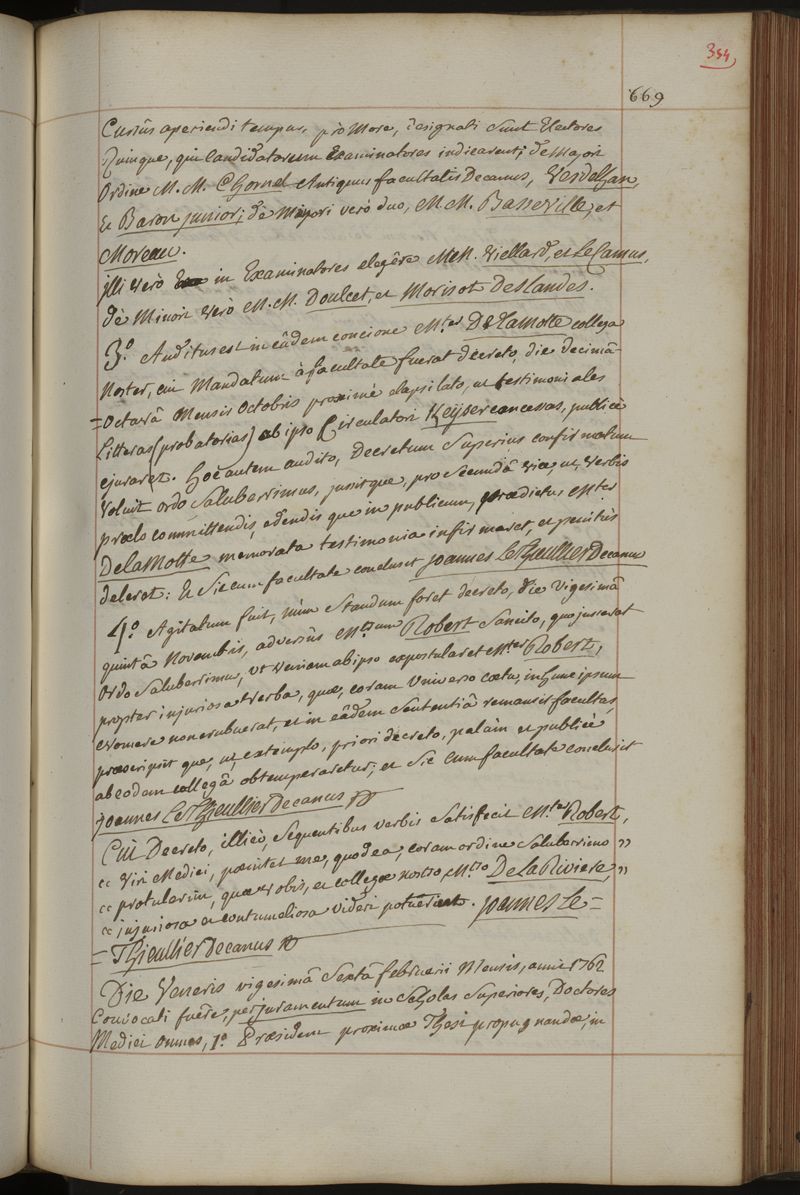 354
669
Cursûs aperiendi tempus, pro More, designati sunt Electores
Quinque, qui Candidatorum Examinatores indicarent; de Majori
Ordine M. M. Chomel Antiquus facultatis Decanus, Verdelhan,
Et Baron junior; de Minori verò duo, M.M. Basseville, et
Moreau.
illi verò in Examinatores elegêre MM. Viellard, et Le Camus,
de Minori verò M.M. Doulcet, et Morisot Deslandes.
3.° Auditus est in eâdem concione M.ter De La Motte collega
Noster, cui Mandatum à facultate fuerat decreto, die decimâ
=octavâ Mensis Octobris proximè elapsi lato, ut testimoniales
Litteras (probatorias) ab ipso Circulatori Keyser concessas, publicè
ejuraret. hoc autem audito, Decretum Superius confirmatum
voluit ordo Saluberrimus, jussitque, pro Secundâ vice, ut, verbis
prælo committendis, edendisque in publicum, prædictus M.ter
De la Motte memorata testimonia infirmaret, et penitùs
deleret: Et Sic cum facultate conclusit Joannes Le Thieullier Decanus
4.° Agitatum fuit, num Standum foret decreto, die vigesimâ
quintâ Novembris, adversùs M.trum Robert Sancito, quo jusserat
Ordo Saluberrimus, ut veniam ab ipso expostularet M.ter Robert,
propter injuriosa verba, quæ, coram Universo cœtu, in hunc ipsum
evomere non erubuerat, et in eâdem Sententiâ remansit facultas,
præscripsitque, ut extemplo, priori decreto, palàm et publicè
ab eodem collegâ obtemperaretur; et Sic cum facultate conclusit
Joannes Le Thieullier Decanus
Cui Decreto, illicò, Sequentibus verbis Satisfecit M.ter Robert,
" Viri Medici, pœnitet me, quod ea, coram ordine Saluberrimo "
" protulerim, quæ vobis, et collegæ nostro M.tro De La Riviere, "
" injuriosa et contumeliosa videri potuerint. Joannes Le=
=Thieullier Decanus
Die Veneris vigesimâ Sextâ februarii Mensis, anni 1762
Convocati fuêre, per juramentum in Scholas Superiores, Doctores
Medici omnes, 1.° Præsidem proximæ Thesi propugnandæ, in